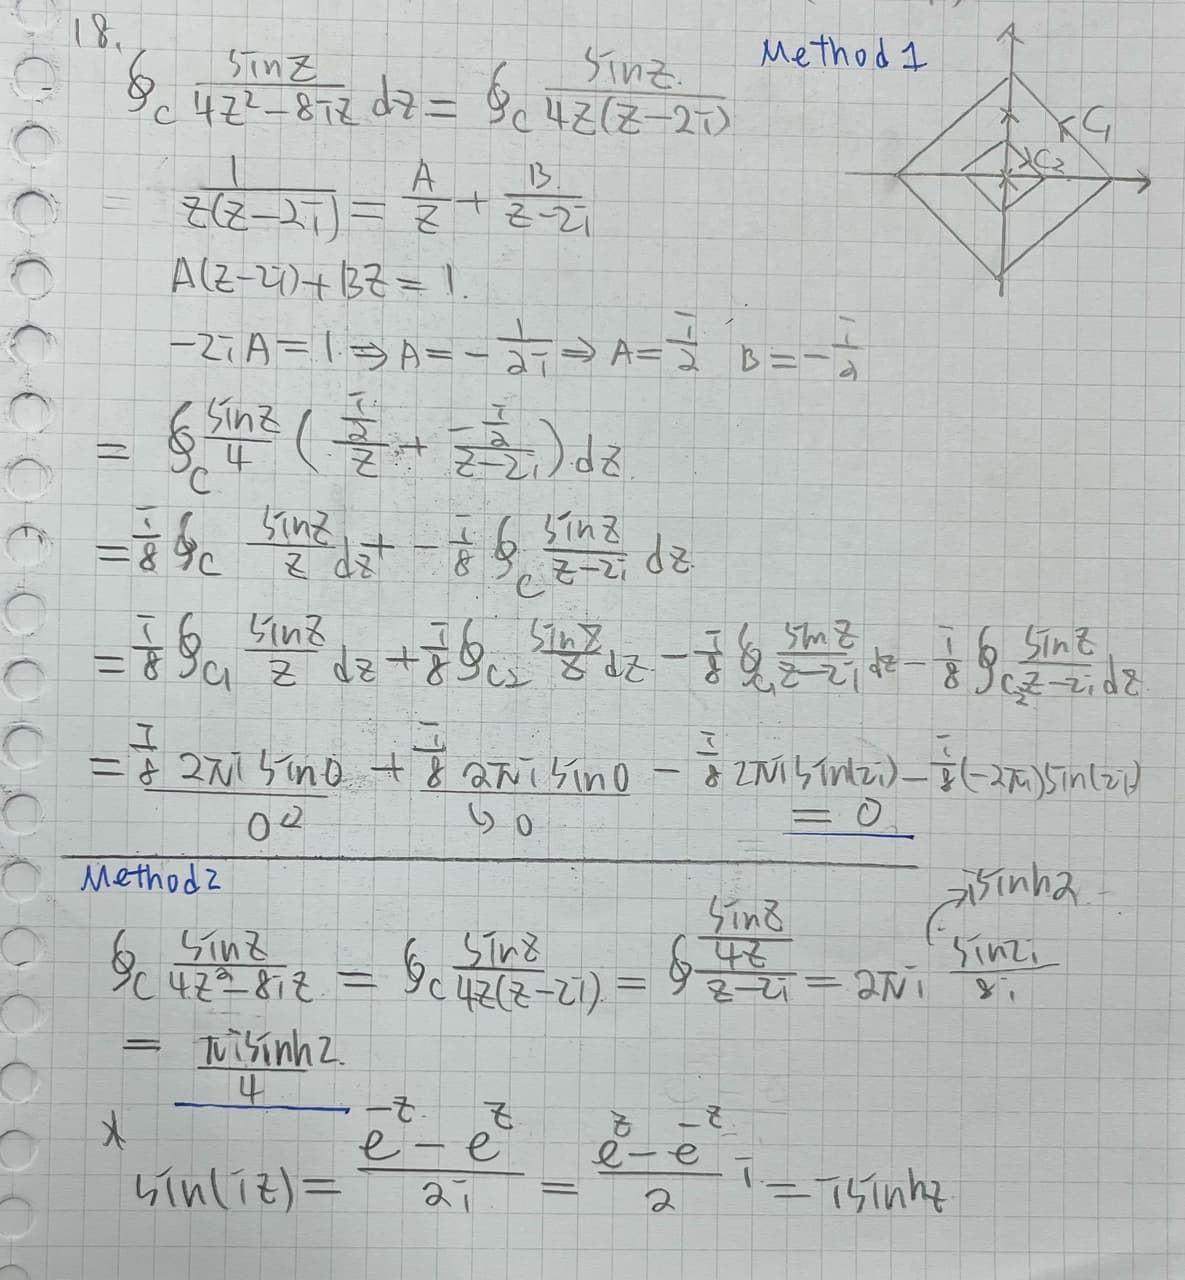 18.
Method 1
∮_C sinz/(4z²-8iz) dz = ∮_C sinz/(4z(z-2i))
C₁
C₂
= 1/(z(z-2i)) = A/z + B/(z-2i)
A(z-2i)+Bz = 1.
-2iA = 1. ⇒ A = -1/(2i) ⇒ A = i/2 B = -i/2
= ∮_C sinz/4 ( (i/2)/z + (-i/2)/(z-2i) ) dz.
= i/8 ∮_C sinz/z dz + -i/8 ∮_C sinz/(z-2i) dz.
= i/8 ∮_C₁ sinz/z dz + i/8 ∮_C₂ sinz/z dz - i/8 ∮_C₁ sinz/(z-2i) dz - i/8 ∮_C₂ sinz/(z-2i) dz
= i/8 2πi sin0 + i/8 2πi sin0 - i/8 2πi sin(2i) - i/8 (-2πi) sin(2i)
0 ↳ 0 = 0
Method 2
→ isinh2
∮_C sinz/(4z²-8iz) = ∮_C sinz/(4z(z-2i)) = ∮ (sinz/4z)/(z-2i) = 2πi sin2i/8i
= πisinh2/4
* sin(iz) = (e^-z - e^z)/2i = (e^z - e^-z)/2 i = isinhz